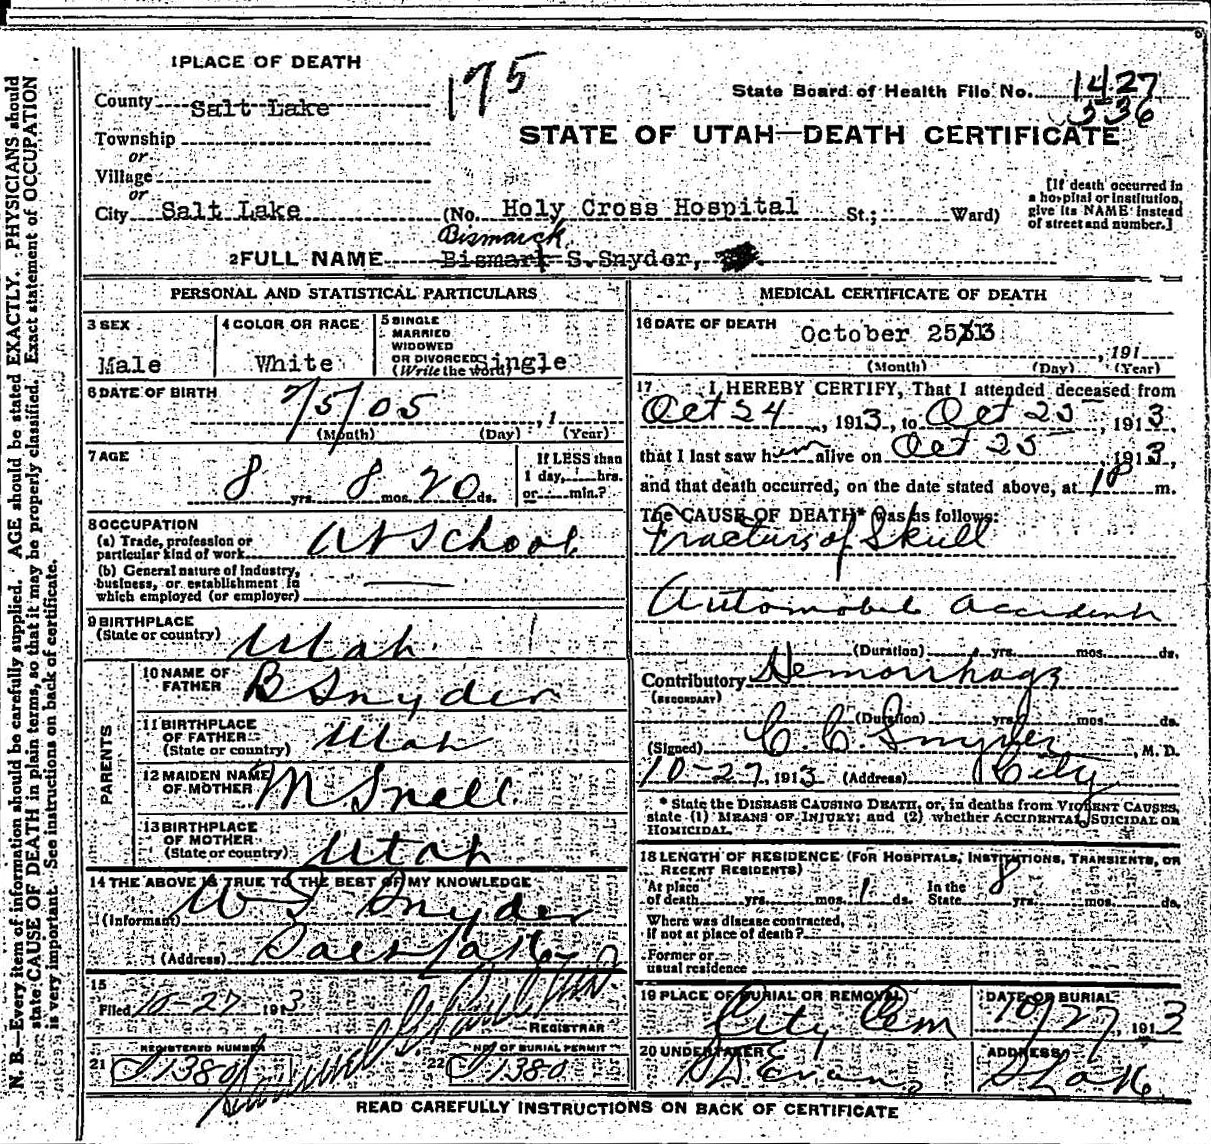 1 PLACE OF DEATH
175
County Salt Lake
State Board of Health File No. 1427
536
Township
or
STATE OF UTAH—DEATH CERTIFICATE
Village
or
City Salt Lake (No. Holy Cross Hospital St.; Ward)
[If death occurred in
a hospital or institution,
give its NAME instead
of street and number.]
Bismarck
2 FULL NAME Bismark S. Snyder,
PERSONAL AND STATISTICAL PARTICULARS
3 SEX
Male
4 COLOR OR RACE
White
5 SINGLE
MARRIED
WIDOWED
OR DIVORCED
(Write the word)
Single
6 DATE OF BIRTH
7/5/05 , 1
(Month) (Day) (Year)
7 AGE
8 yrs. 8 mos. 20 ds.
If LESS than
1 day, hrs.
or min.?
8 OCCUPATION
(a) Trade, profession or
particular kind of work At School
(b) General nature of industry,
business, or establishment in
which employed (or employer)
9 BIRTHPLACE
(State or country) Utah
PARENTS
10 NAME OF
FATHER B Snyder
11 BIRTHPLACE
OF FATHER
(State or country) Utah
12 MAIDEN NAME
OF MOTHER M Snell
13 BIRTHPLACE
OF MOTHER
(State or country) Utah
14 THE ABOVE IS TRUE TO THE BEST OF MY KNOWLEDGE
(Informant) Snyder
(Address) Salt Lake
15
Filed 10-27 1913
REGISTRAR
REGISTERED NUMBER
21 J1380
NO. OF BURIAL PERMIT
22 J1380
MEDICAL CERTIFICATE OF DEATH
16 DATE OF DEATH October 25 13
, 191
(Month) (Day) (Year)
17 I HEREBY CERTIFY, That I attended deceased from
Oct 24, 1913, to Oct 25, 1913,
that I last saw him alive on Oct 25, 1913,
and that death occurred, on the date stated above, at m.
The CAUSE OF DEATH* was as follows:
Fracture of Skull
Automobile accident
(Duration) yrs. mos. ds.
Contributory Hemorrhage
(SECONDARY)
(Duration) yrs. mos. ds.
(Signed) C. C. Snyder, M. D.
10-27, 1913 (Address) City
* State the DISEASE CAUSING DEATH, or, in deaths from VIOLENT CAUSES,
state (1) MEANS OF INJURY; and (2) whether ACCIDENTAL, SUICIDAL OR
HOMICIDAL.
18 LENGTH OF RESIDENCE (FOR HOSPITALS, INSTITUTIONS, TRANSIENTS, OR
RECENT RESIDENTS)
At place
of death yrs. mos. 1 ds.
In the
State 8 yrs. mos. ds.
Where was disease contracted,
if not at place of death?
Former or
usual residence
19 PLACE OF BURIAL OR REMOVAL
City Cem
DATE OF BURIAL
10/27 1913
20 UNDERTAKER
Evans
ADDRESS
S Lake
READ CAREFULLY INSTRUCTIONS ON BACK OF CERTIFICATE
N. B.—Every item of information should be carefully supplied. AGE should be stated EXACTLY. PHYSICIANS should
state CAUSE OF DEATH in plain terms, so that it may be properly classified. Exact statement of OCCUPATION
is very important. See instructions on back of certificate.